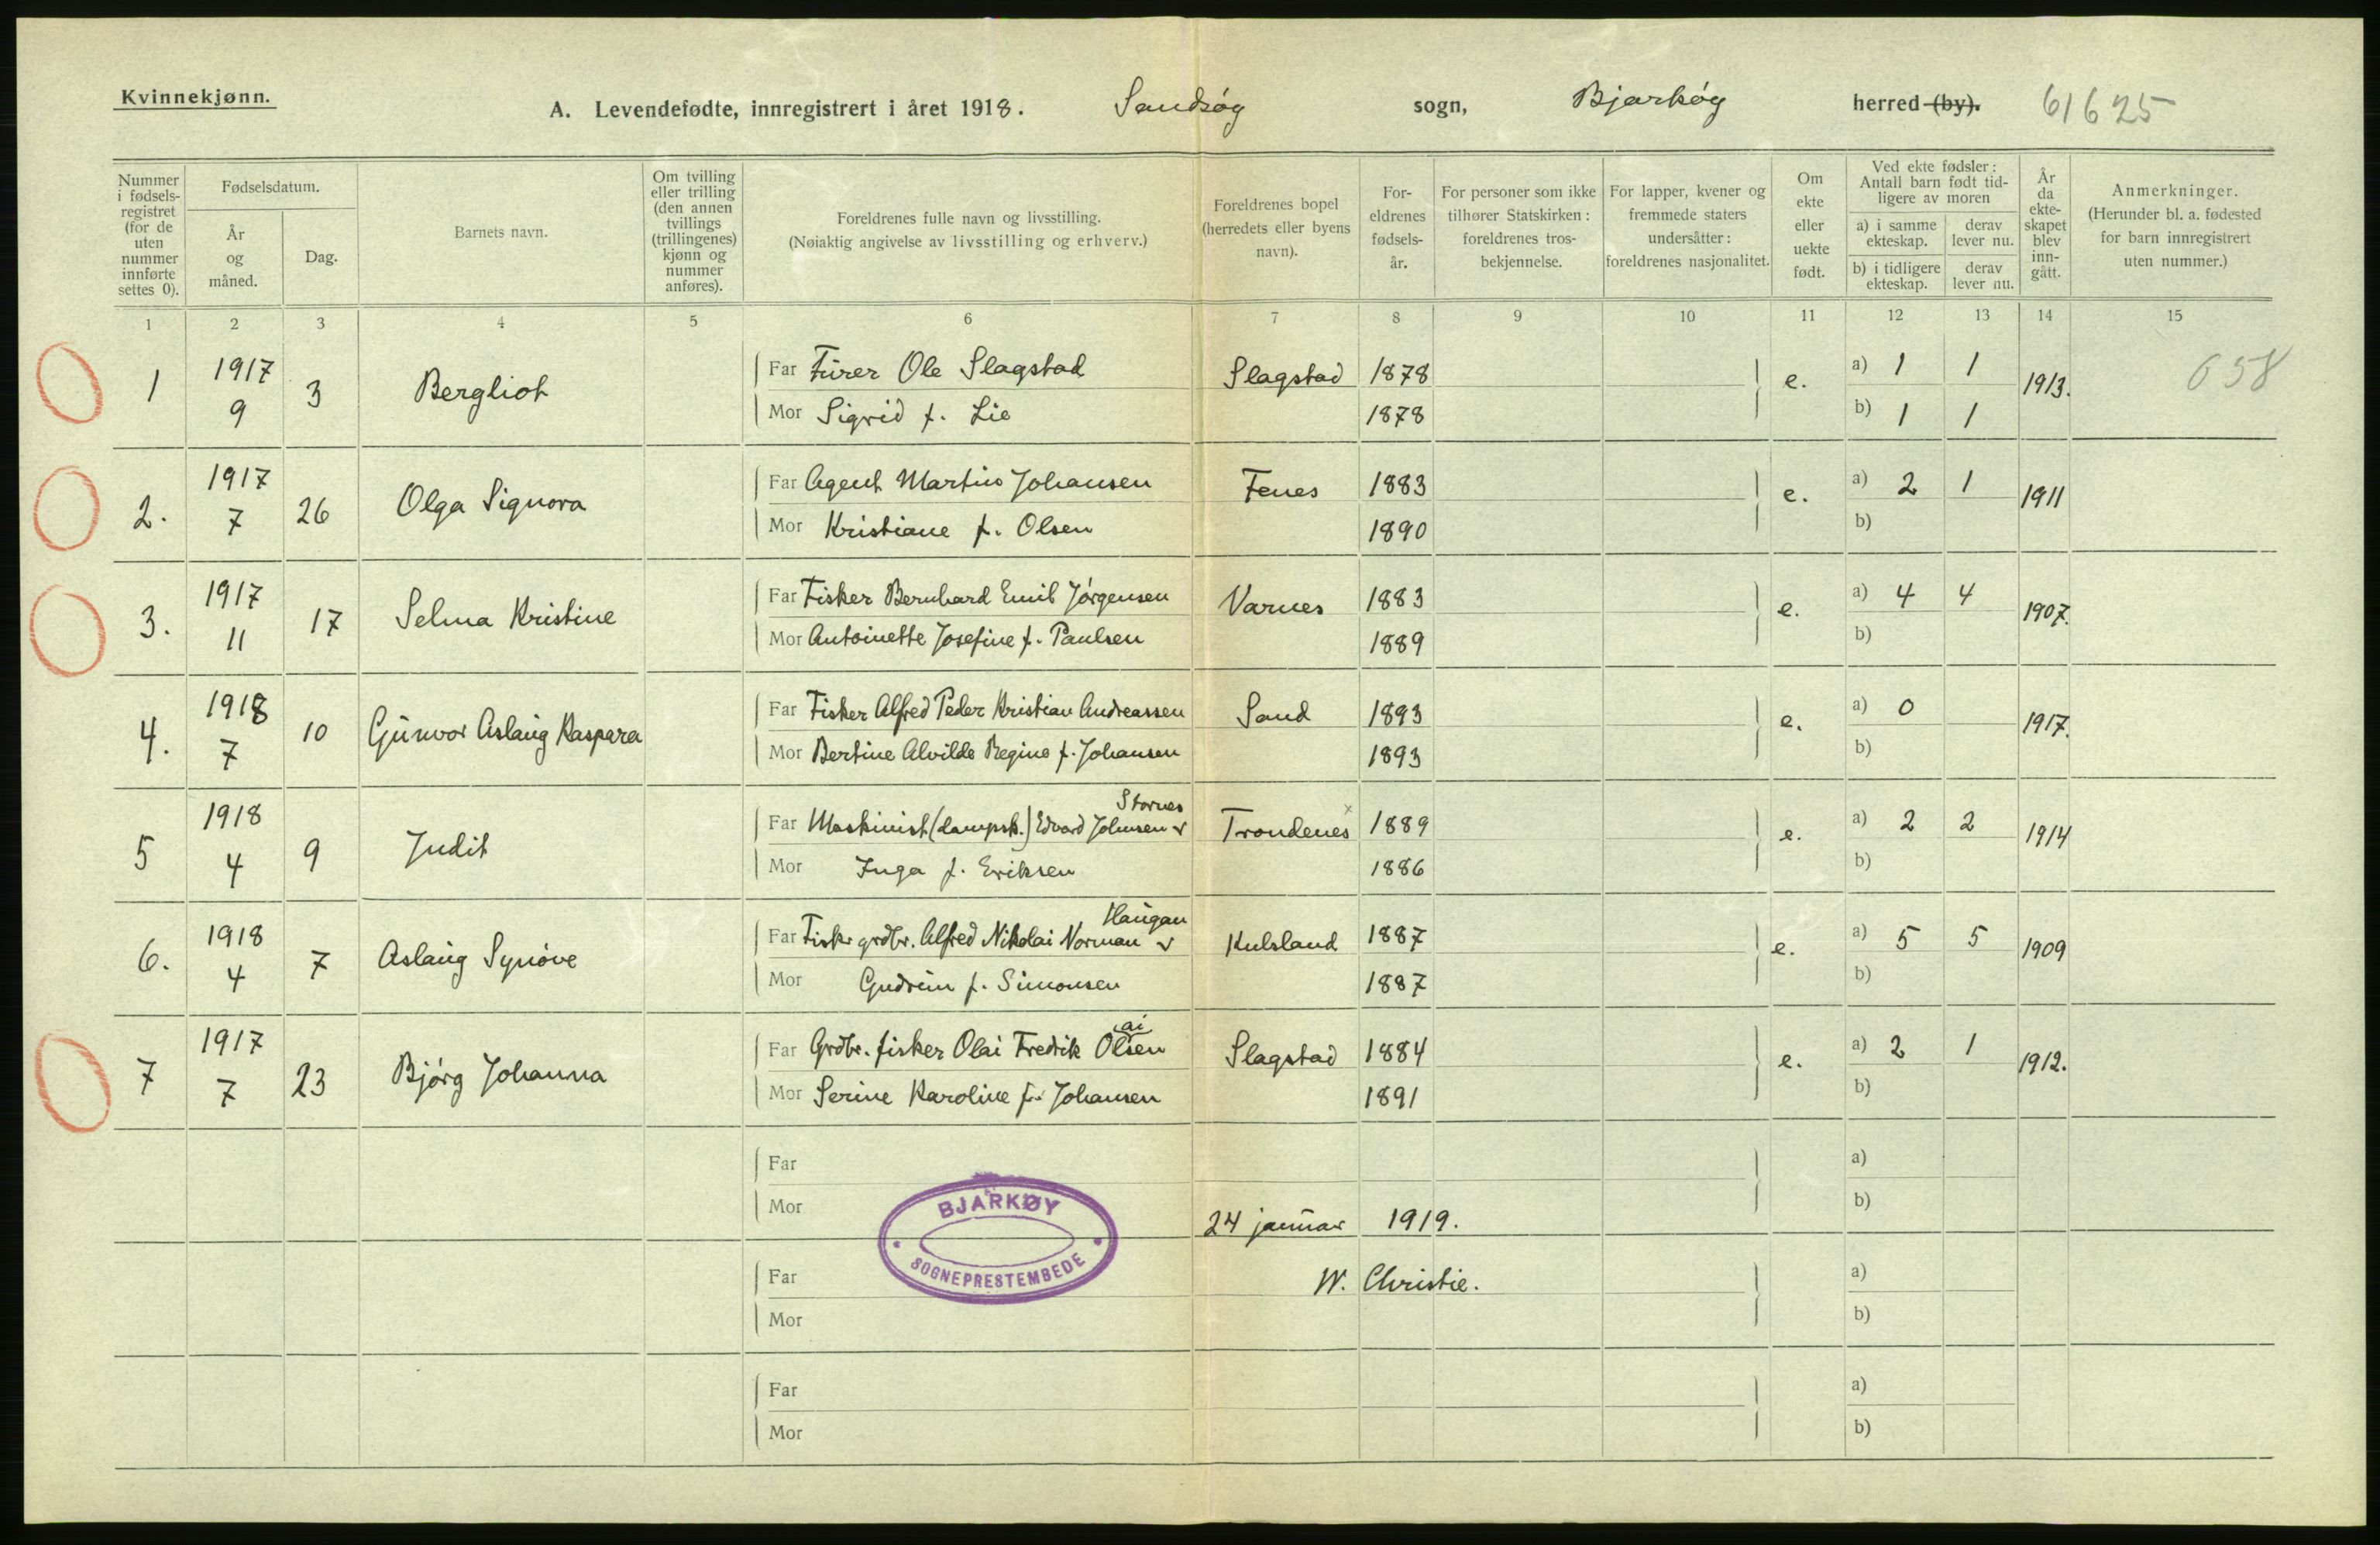 Kvinnekjønn.
A. Levendefødte, innregistrert i året 1918. Sandsøy sogn, Bjarkøy herred (by). 61625
Nummer i fødsels-registret (for de uten nummer innførte settes 0).
Fødselsdatum.
År og måned.
Dag.
Barnets navn.
Om tvilling eller trilling (den annen tvillings (trillingenes) kjønn og nummer anføres).
Foreldrenes fulle navn og livsstilling.
(Nøiaktig angivelse av livsstilling og erhverv.)
Foreldrenes bopel (herredets eller byens navn).
For-eldrenes fødsels-år.
For personer som ikke tilhører Statskirken: foreldrenes tros-bekjennelse.
For lapper, kvener og fremmede staters undersåtter: foreldrenes nasjonalitet.
Om ekte eller uekte født.
Ved ekte fødsler: Antall barn født tid-ligere av moren
a) i samme ekteskap.
derav lever nu.
b) i tidligere ekteskap.
derav lever nu.
År da ekte-skapet blev inn-gått.
Anmerkninger.
(Herunder bl. a. fødested for barn innregistrert uten nummer.)
1 2 3 4 5 6 7 8 9 10 11 12 13 14 15
1 1917 9 3 Bergliot Far Fürer Ole Slagstad Slagstad 1878 e. a) 1 1 1913. 658
Mor Sigrid f. Lie 1878 b) 1 1
2. 1917 7 26 Olga Signora Far Agent Martin Johansen Fenes 1883 e. a) 2 1 1911
Mor Kristiane f. Olsen 1890 b)
3. 1917 11 17 Selma Kristine Far Fisker Bernhard Emil Jørgensen Varnes 1883 e. a) 4 4 1907.
Mor Antoinette Josefine f. Paulsen 1889 b)
4. 1918 7 10 Gunvor Aslaug Kaspara Far Fisker Alfred Peder Kristian Andreassen Sand 1893 e. a) 0 1917.
Mor Bertine Alvilde Regine f. Johansen 1893 b)
Stornes
5 1918 4 9 Judit Far Maskinist (dampsk.) Edvard Johnsen v Trondenes x 1889 e. a) 2 2 1914
Mor Inga f. Eriksen 1886 b)
Haugan
6. 1918 4 7 Aslaug Synøve Far Fisk. grdbr. Alfred Nikolai Norman v Kulsland 1887 e. a) 5 5 1909
Mor Gudrun f. Simonsen 1887 b)
ai
7 1917 7 23 Bjørg Johanna Far Grdbr. fisker Olai Fredrik Olsen Slagstad 1884 e. a) 2 1 1912.
Mor Serine Karoline f. Johansen 1891 b)
Far a)
Mor b)
BJARKØY
SOGNEPRESTEMBEDE
24 januar 1919.
Far W. Christie. a)
Mor b)
Far a)
Mor b)